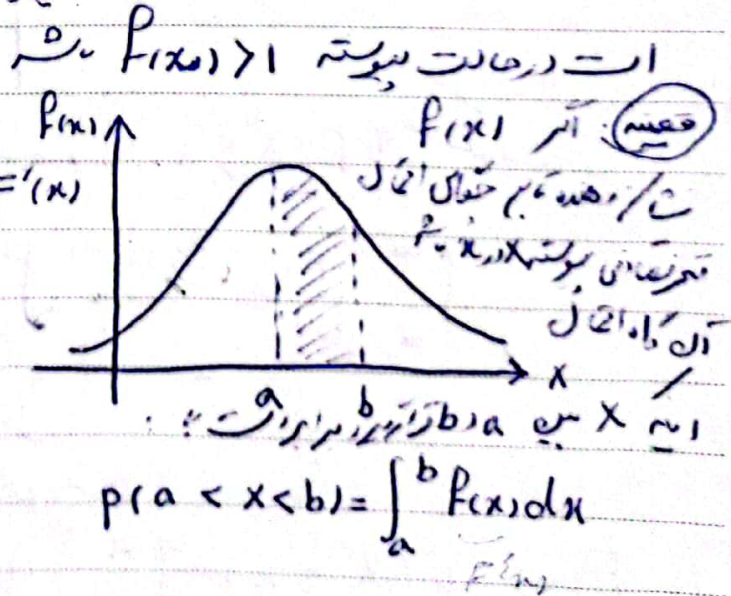 است در حالت پیوسته f(x₀) > 1 باشد
قضیه: اگر f(x)
f(x)
='(x)
نشان دهنده تابع چگالی احتمال
متغیر تصادفی پیوسته x در x باشد
آن گاه احتمال
x
a b
اینکه X بین a و b قرار گیرد برابر است با:
p(a < x < b) = ∫ₐᵇ f(x)dx
F'(x)